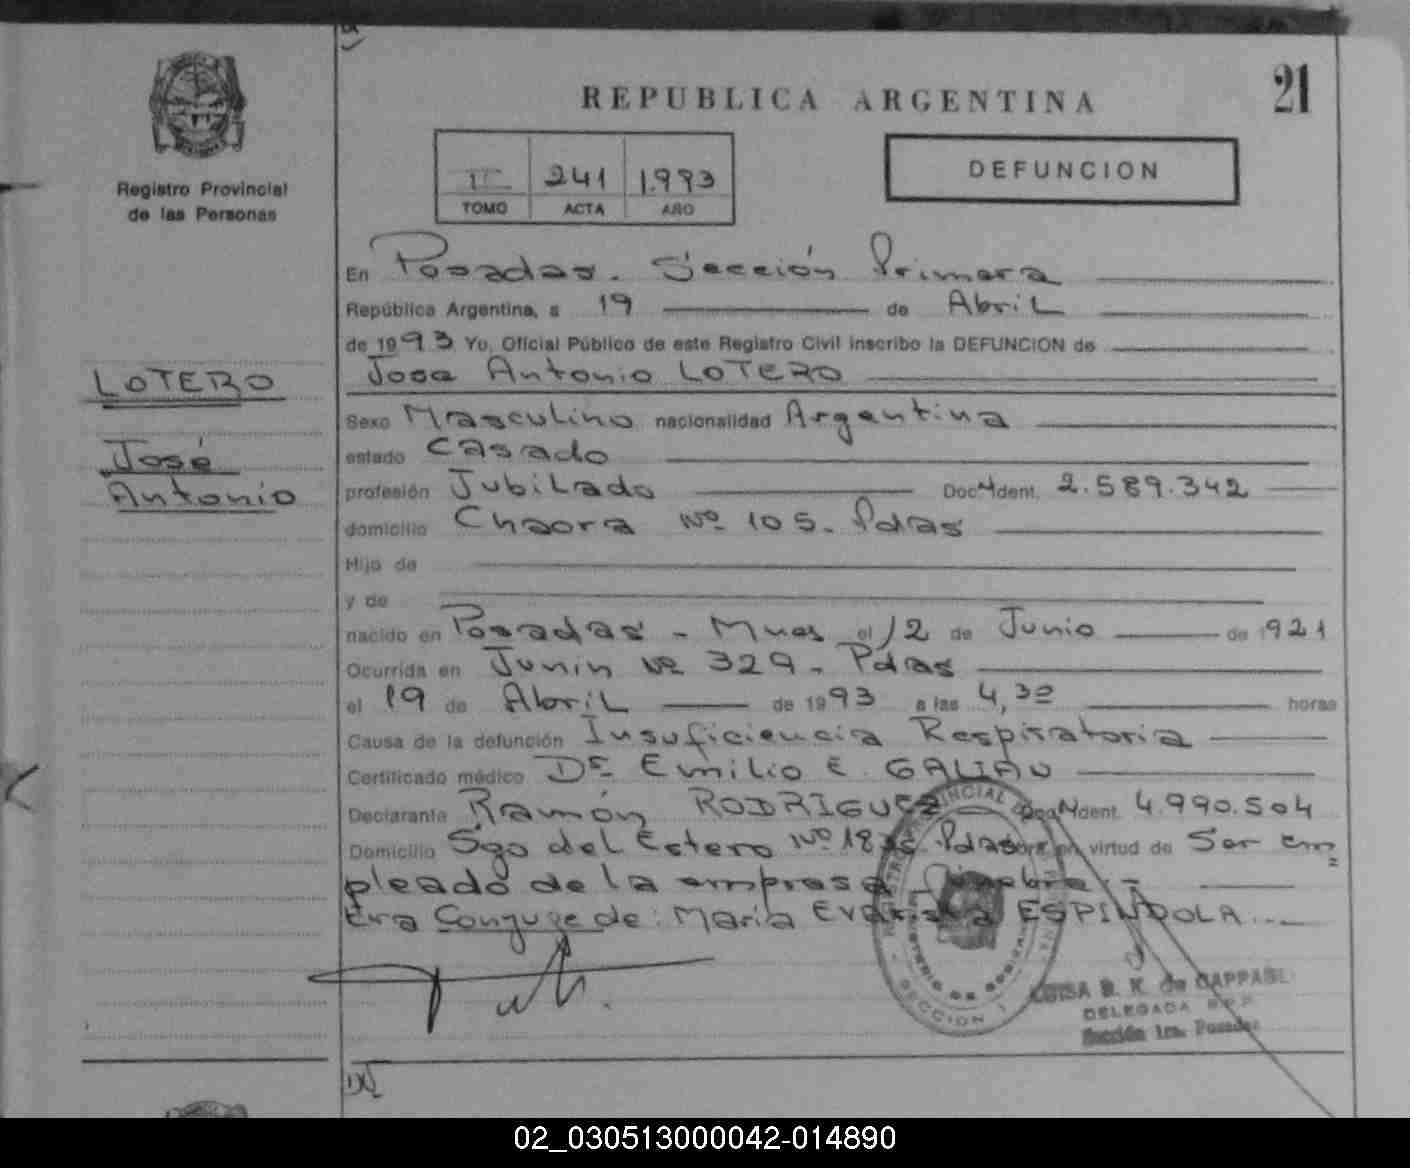 21
REPUBLICA ARGENTINA
Registro Provincial
de las Personas
II 241 1.993
TOMO ACTA AÑO
DEFUNCION
En Posadas. Sección Primera
República Argentina, a 19 de Abril
de 1993 Yo, Oficial Público de este Registro Civil inscribo la DEFUNCION de
Jose Antonio LOTERO
LOTERO
José
Antonio
Sexo Masculino nacionalidad Argentina
estado Casado
profesión Jubilado Doc. Ident. 2.589.342
domicilio Chaora Nº 105. Pdas
Hijo de
y de
nacido en Posadas - Mnes el 12 de Junio de 1921
Ocurrida en Junin Nº 329. Pdas
el 19 de Abril de 1993 a las 4,30 horas
Causa de la defunción Insuficiencia Respiratoria
Certificado médico Dr. Emilio E. GALIAN
Declarante Ramón RODRIGUEZ Doc. Ident. 4.990.504
Domicilio Sgo del Estero Nº Pdas en virtud de Ser em=
pleado de la empresa
Era Conyuge de: Maria Evarista ESPINDOLA...
SECCION 1
LUISA B. K. de CAPPASL
DELEGADA R.P.P.
Sección 1ra. Posadas
02_030513000042-014890